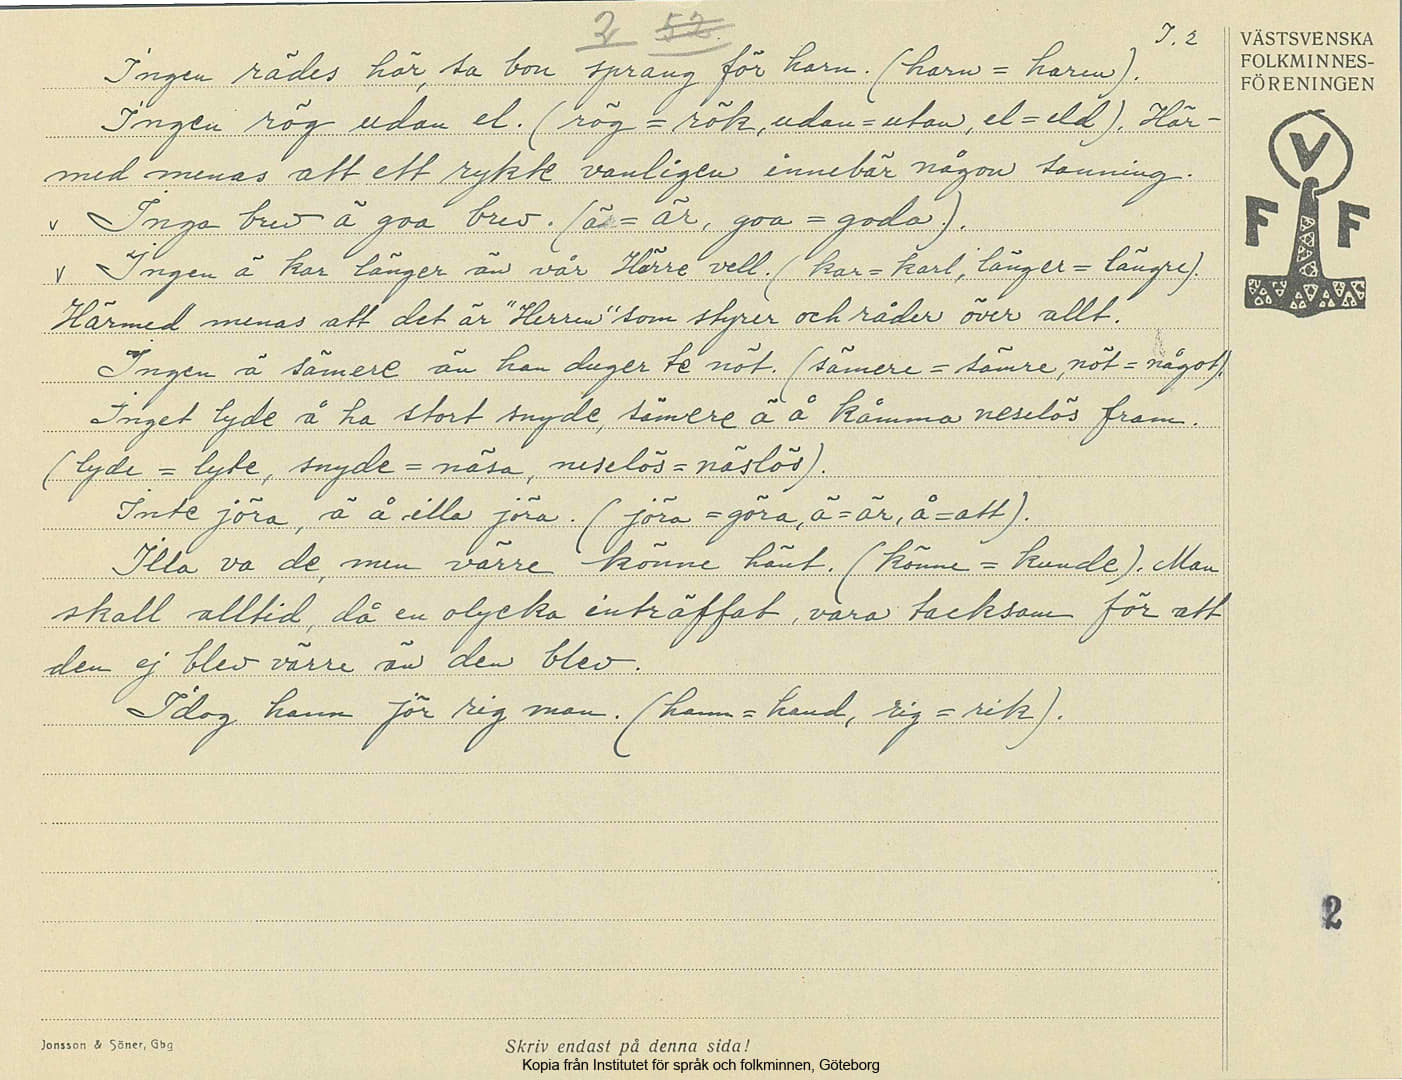 2 52
I. 2
Ingen rädes här, sa bon sprang för harn. (harn = haren).
Ingen rög udan el. (rög = rök, udan = utan, el = eld). Här-
med menas att ett rykte vanligen innebär någon sanning.
v Inga brev ä goa brev. (ä = är, goa = goda).
v Ingen ä kar länger än vår Härre vell. (kar = karl, länger = längre).
Härmed menas att det är "Herren" som styrer och råder över allt.
Ingen ä sämere än han duger te nöt. (sämere = sämre, nöt = något).
Inget lyde å ha stort snyde, sämere ä å kåmma neselös fram.
(lyde = lyte, snyde = näsa, neselös = näslös).
Inte jöra, ä å illa jöra. (jöra = göra, ä = är, å = att).
Illa va de, men värre könne hänt. (könne = kunde). Man
skall alltid, då en olycka inträffat, vara tacksam för att
den ej blev värre än den blev.
Idog hann jör rig man. (hann = hand, rig = rik).
VÄSTSVENSKA
FOLKMINNES-
FÖRENINGEN
V
F F
2
Jonsson & Söner, Gbg
Skriv endast på denna sida!
Kopia från Institutet för språk och folkminnen, Göteborg